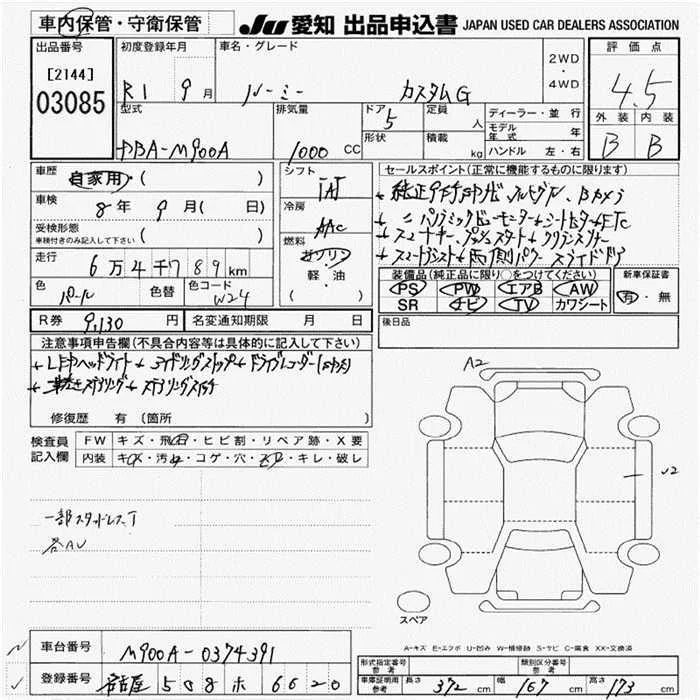 車内保管・守衛保管
JU 愛知 出品申込書 JAPAN USED CAR DEALERS ASSOCIATION
出品番号
[2144]
03085
初度登録年月
R1 9月
車名・グレード
ルーミー カスタムG
2WD
・
4WD
評価点
4.5
外装 内装
B B
型式
DBA-M900A
排気量
1000 CC
ドア
5
形状
定員
人
積載
kg
ディーラー・並行
モデル年式 年
ハンドル 左・右
車歴
自家用 ( )
車検
8年 9月( 日)
受検形態
車検付きのみ記入して下さい ( )
走行
6万4千789km
色
パール
色替
色コード
W24
シフト
IAT
冷房
AAC
燃料
ガソリン
軽・油
( )
セールスポイント(正常に機能するものに限ります)
ナビ フルセグ Bカメラ
パノラミックビューモニター シートヒーター ETC
スマートキー プッシュスタート クリアランスソナー
スマートアシスト 両側パワースライドドア
装備品(純正品に限り○をつけてください)
PS PW エアB AW
SR ナビ TV カワシート
新車保証書
有・無
後日品
R券 9,130 円
名変通知期限 月 日
注意事項申告欄(不具合内容等は具体的に記入して下さい)
LEDヘッドライト アイドリングストップ ドライブレコーダー
ステアリング ステアリングスイッチ
修復歴 有 (箇所
検査員
記入欄
FW キズ・飛石・ヒビ割・リペア跡・X要
内装 キズ・汚れ・コゲ・穴・・キレ・破レ
一部スタッドレスT
各AU
A2
U2
スペア
A-キズ E-エクボ U-凹み W-補修跡 S-サビ C-腐食 XX-交換済
車台番号 M900A-0374391
登録番号 名古屋 508 ホ 6620
形式指定番号
参考
類別区分番号
参考
車庫証明用
参考
長さ 372 cm 幅 167 cm 高さ 173 cm